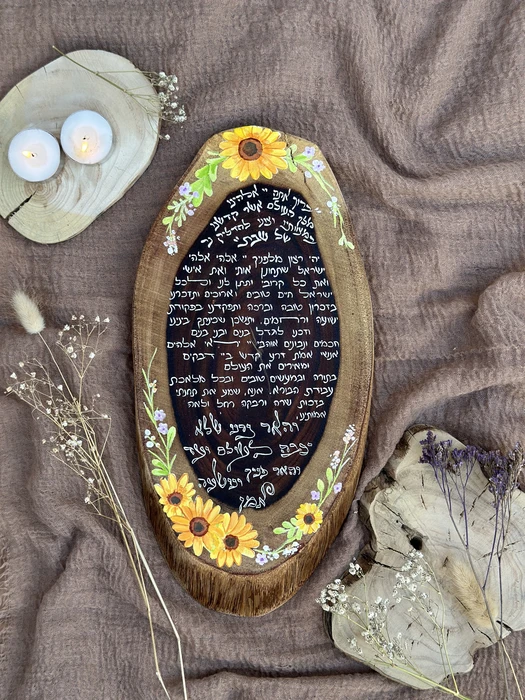 ברוך אתה יי אלהינו
מלך העולם אשר קדשנו
במצוותיו וצונו להדליק נר
של שבת
יהי רצון מלפניך יי אלהי אלהי
ישראל שתחונן אותי ואת אישי
ואת כל קרובי ותתן לנו ולכל
ישראל חיים טובים וארוכים ותזכרנו
בזכרון טובה וברכה ותפקדנו בפקודת
ישועה ורחמים ותשכן שכינתך בינינו
וזכנו לגדל בנים ובני בנים
חכמים ונבונים אוהבי יי יראי אלהים
אנשי אמת זרע קדש ביי דבקים
ומאירים את העולם
בתורה ובמעשים טובים ובכל מלאכת
עבודת הבורא. אנא, שמע את תחינתי
בזכות שרה ורבקה רחל ולאה
אמותינו,
והאר נרנו שלא
יכבה לעולם ועד
והאר פניך ונוושעה
אמן